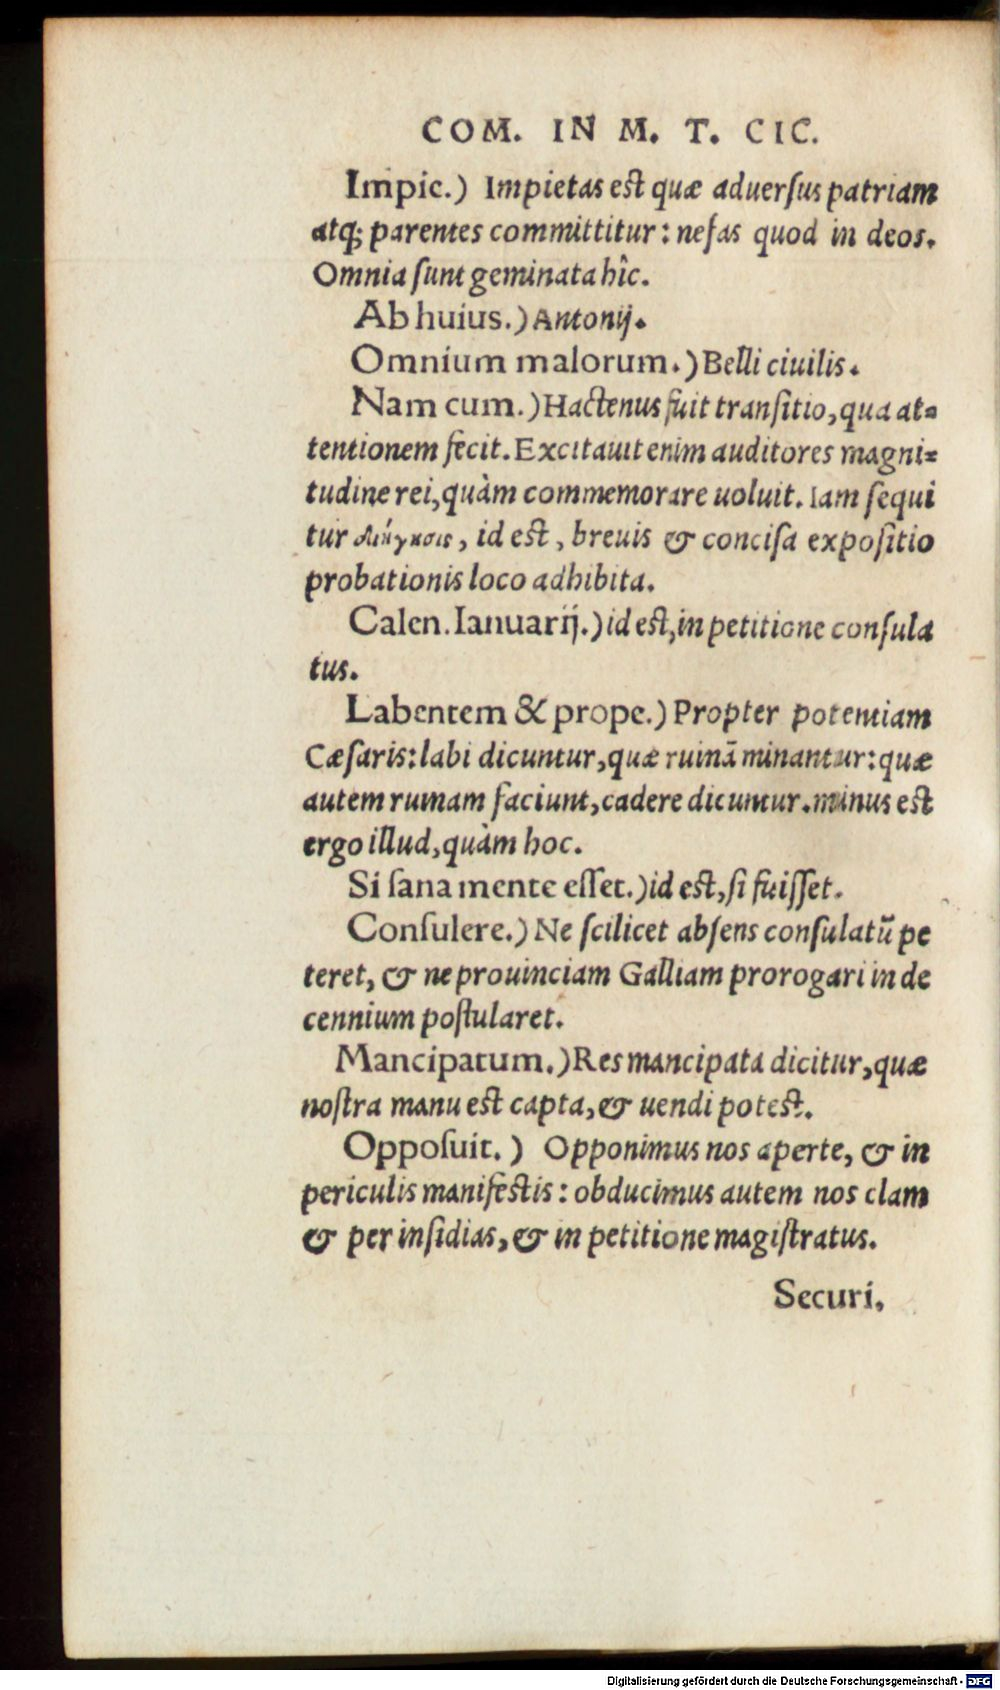 COM. IN M. T. CIC.
Impie.) Impietas est quæ aduersus patriam
atq; parentes committitur: nefas quod in deos.
Omnia sunt geminata hîc.
Ab huius.) Antonij.
Omnium malorum.) Belli ciuilis.
Nam cum.) Hactenus fuit transitio, qua at=
tentionem fecit. Excitauit enim auditores magni=
tudine rei, quàm commemorare uoluit. Iam sequi
tur διήγησις, id est, breuis & concisa expositio
probationis loco adhibita.
Calen. Ianuarij.) id est, in petitione consula
tus.
Labentem & prope.) Propter potentiam
Cæsaris: labi dicuntur, quæ ruinā minantur: quæ
autem ruinam faciunt, cadere dicuntur. minus est
ergo illud, quàm hoc.
Si sana mente esset.) id est, si fuisset.
Consulere.) Ne scilicet absens consulatū pe
teret, & ne prouinciam Galliam prorogari in de
cennium postularet.
Mancipatum.) Res mancipata dicitur, quæ
nostra manu est capta, & uendi potest.
Opposuit.) Opponimus nos aperte, & in
periculis manifestis: obducimus autem nos clam
& per insidias, & in petitione magistratus.
Securi,
Digitalisierung gefördert durch die Deutsche Forschungsgemeinschaft - DFG